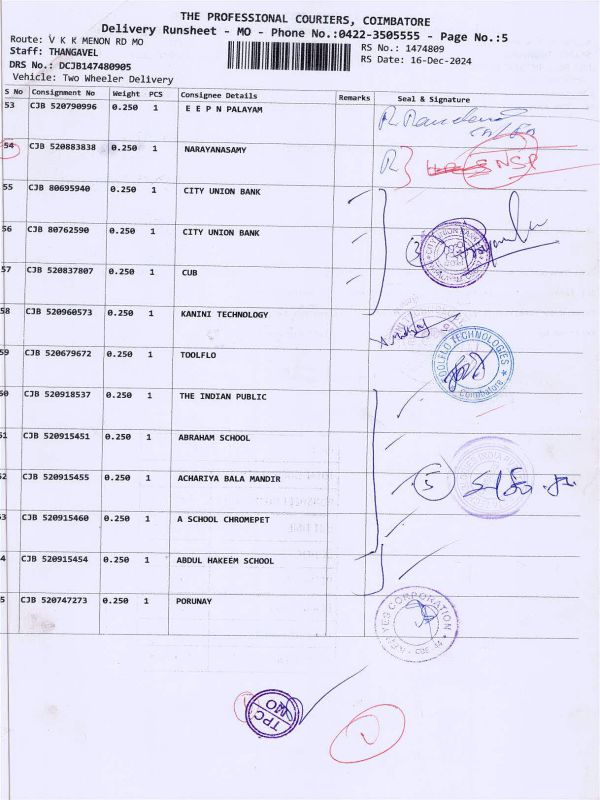 THE PROFESSIONAL COURIERS, COIMBATORE
Delivery Runsheet - MO - Phone No.:0422-3505555 - Page No.:5
Route: V K K MENON RD MO
RS No.: 1474809
Staff: THANGAVEL
RS Date: 16-Dec-2024
DRS No.: DCJB147480905
Vehicle: Two Wheeler Delivery
S No Consignment No Weight PCS Consignee Details Remarks Seal & Signature
53 CJB 520790996 0.250 1 E E P N PALAYAM
54 CJB 520883838 0.250 1 NARAYANASAMY
NSP
55 CJB 80695940 0.250 1 CITY UNION BANK
56 CJB 80762590 0.250 1 CITY UNION BANK
3
CITY UNION BANK
57 CJB 520837807 0.250 1 CUB
58 CJB 520960573 0.250 1 KANINI TECHNOLOGY
59 CJB 520679672 0.250 1 TOOLFLO
OOLFLO TECHNOLOGIES
Coimbatore
60 CJB 520918537 0.250 1 THE INDIAN PUBLIC
61 CJB 520915451 0.250 1 ABRAHAM SCHOOL
62 CJB 520915455 0.250 1 ACHARIYA BALA MANDIR
5
63 CJB 520915460 0.250 1 A SCHOOL CHROMEPET
4 CJB 520915454 0.250 1 ABDUL HAKEEM SCHOOL
5 CJB 520747273 0.250 1 PORUNAY
CORPORATION
TPC
MO